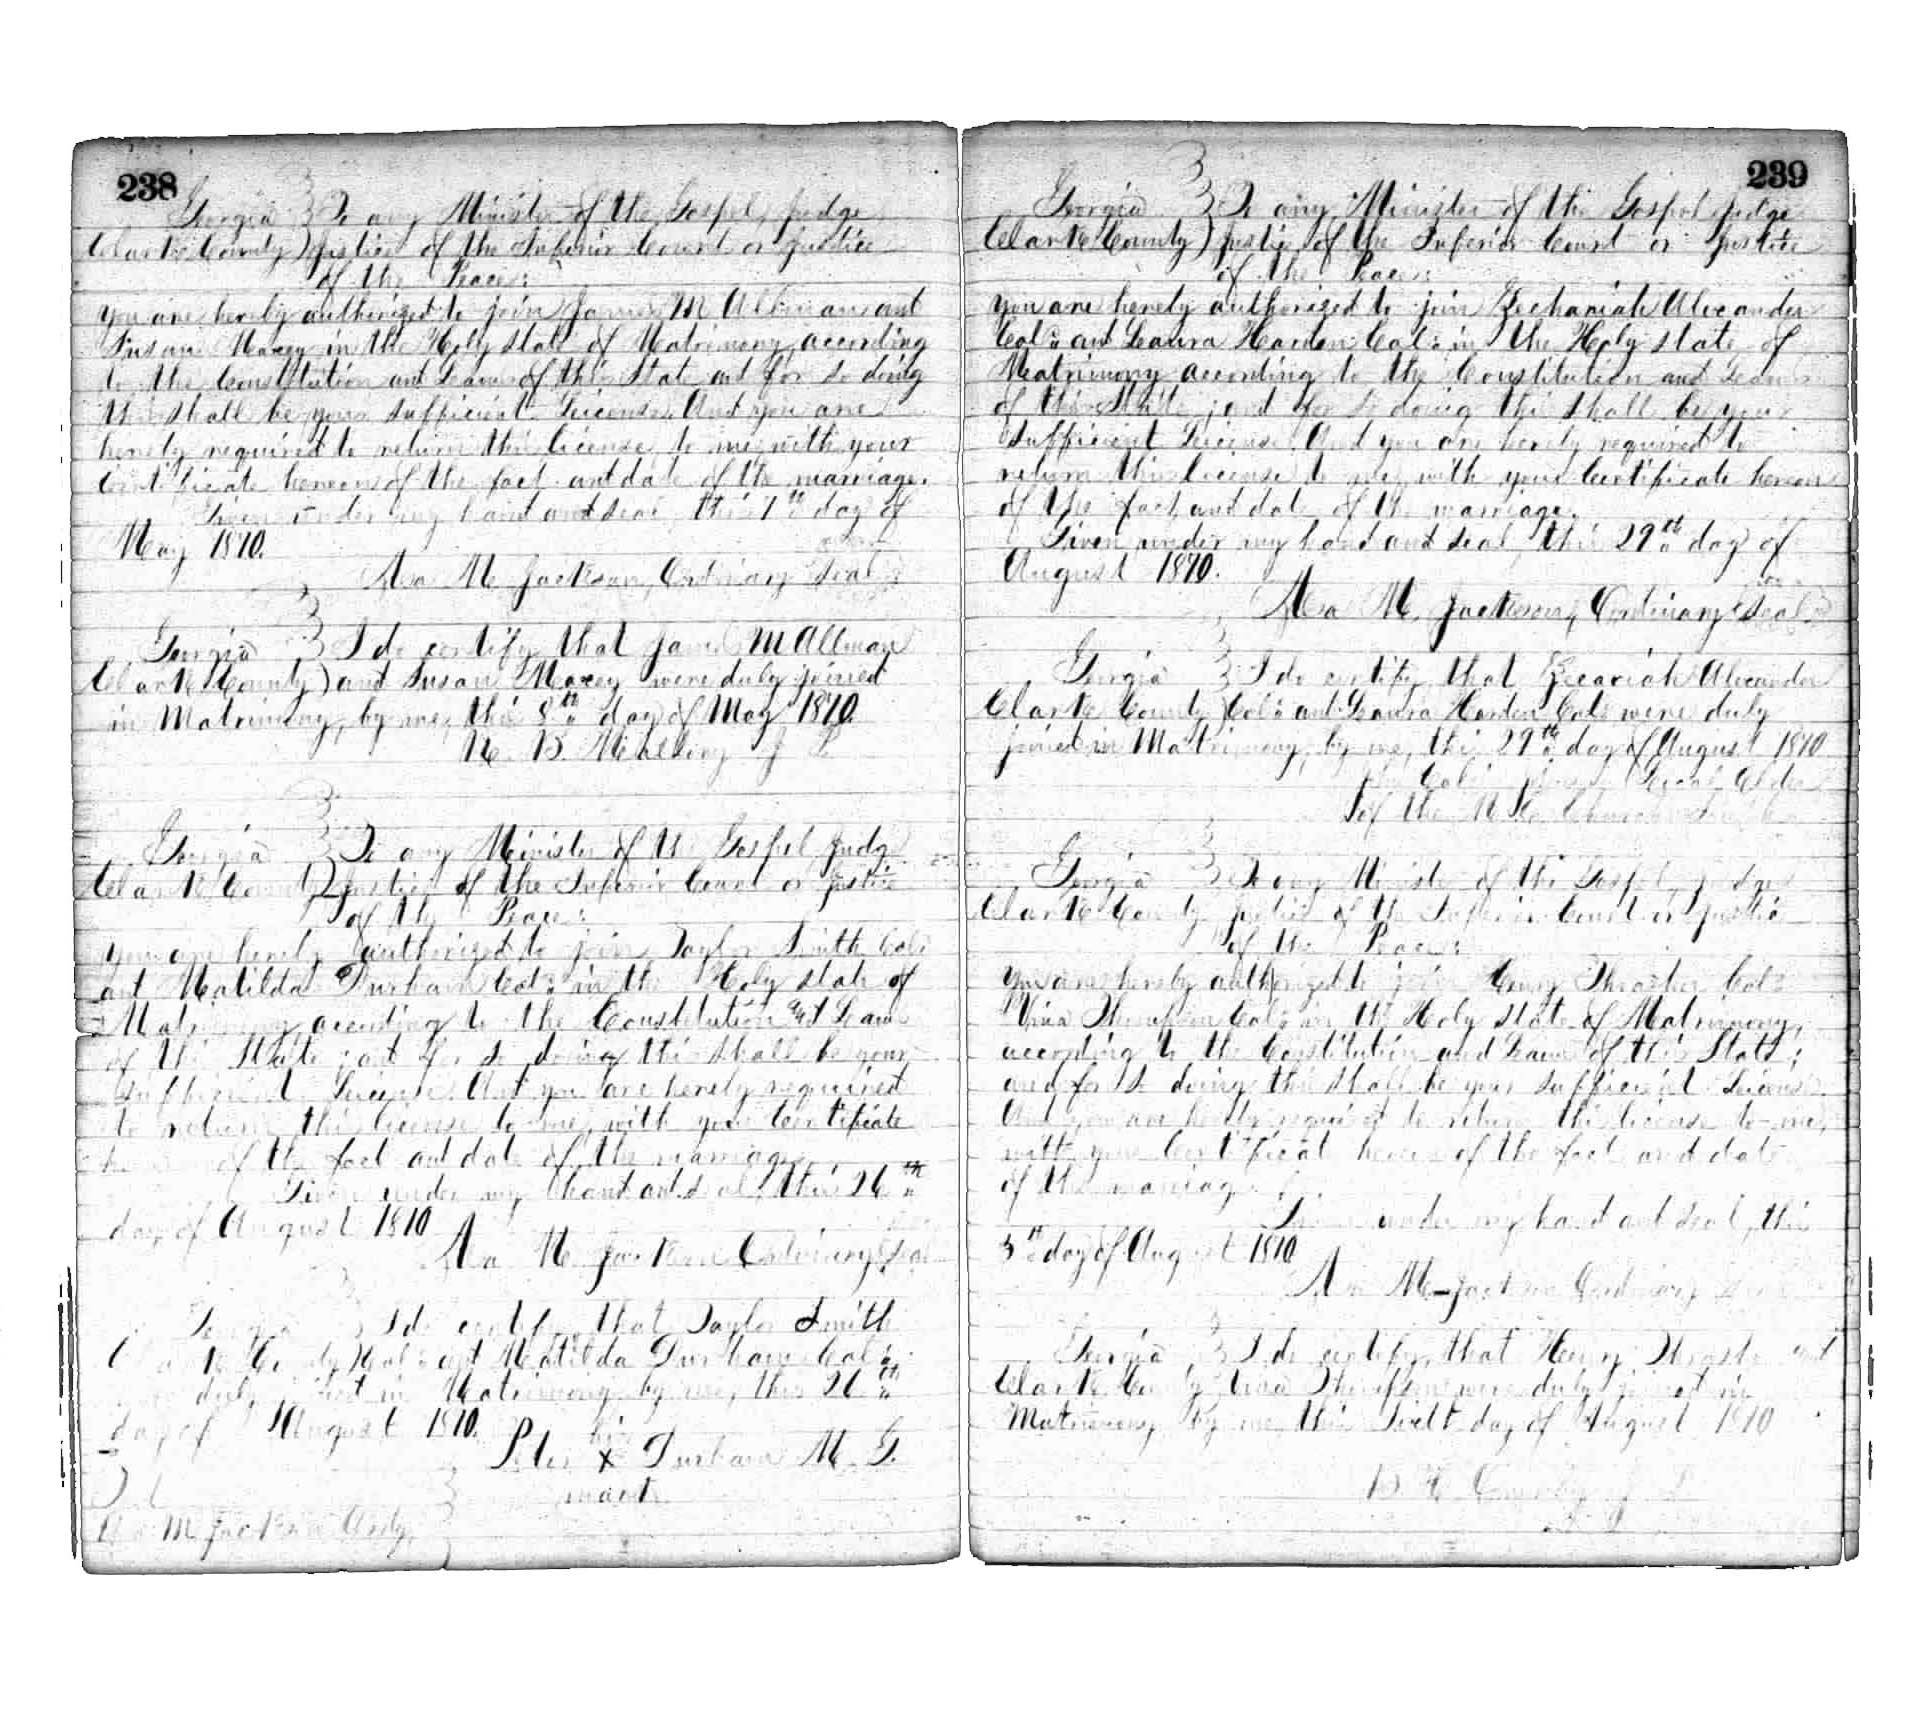 238
Georgia To any Minister of the Gospel, Judge
Clarke County Justice of the Inferior Court or Justice
of the Peace:
you are hereby authorized to join James M Allman and
Susan Maxey in the Holy state of Matrimony according
to the Constitution and Laws of this State and for so doing
this shall be your sufficient License. And you are
hereby required to return this license to me with your
Certificate hereon of the fact and date of the marriage.
Given under my hand and seal, this 7th day of
May 1870.
Asa M Jackson, Ordinary Seal
Georgia I do certify that James M Allman
Clarke County and Susan Maxey were duly joined
in Matrimony, by me, this 8th day of May 1870.
Georgia To any Minister of the Gospel Judge
Clarke County Justice of the Inferior Court or Justice
of the Peace:
you are hereby authorized to join Taylor Smith Col:
and Matilda Durham Col: in the Holy state of
Matrimony according to the Constitution and Laws
of this State; and for so doing this shall be your
sufficient License. And you are hereby required
to return this license to me, with your Certificate
of the fact and date of the marriage
Given under my hand and seal, this 26th
day of August 1870
Asa M Jackson Ordinary Seal
Georgia I do certify that Taylor Smith
Clarke County Col: and Matilda Durham Col:
duly joined in Matrimony by me, this 26th
day of August 1870.
his
Peter X Durham M. G.
mark
Asa M Jackson Ordy.
239
Georgia To any Minister of the Gospel Judge
Clarke County Justice of the Inferior Court or Justice
of the Peace:
you are hereby authorized to join Zechariah Alexander
Col: and Laura Harden Col: in the Holy state of
Matrimony according to the Constitution and Laws
of this State; and for so doing this shall be your
sufficient License. And you are hereby required to
return this license to me, with your Certificate hereon
of the fact and date of the marriage.
Given under my hand and seal, this 29th day of
August 1870.
Asa M. Jackson, Ordinary Seal
Georgia I do certify that Zecariah Alexander
Clarke County Col: and Laura Harden Col: were duly
joined in Matrimony, by me, this 29th day of August 1870
Local Elder
of the M. E. Church
Georgia To any Minister of the Gospel, Judge
Clarke County Justice of the Inferior Court or Justice
of the Peace:
you are hereby authorized to join Henry Thrasher Col:
Vina Thompson Col: in the Holy state of Matrimony,
according to the Constitution and Laws of this State;
and for so doing this shall be your sufficient License.
And you are hereby required to return this license to me,
with your Certificate hereon of the fact and date
of the marriage.
Given under my hand and seal, this
5th day of August 1870
Asa M Jackson Ordinary Seal
Georgia I do certify, that Henry Thrasher and
Clarke County Vina Thompson were duly joined in
Matrimony by me this day of August 1870